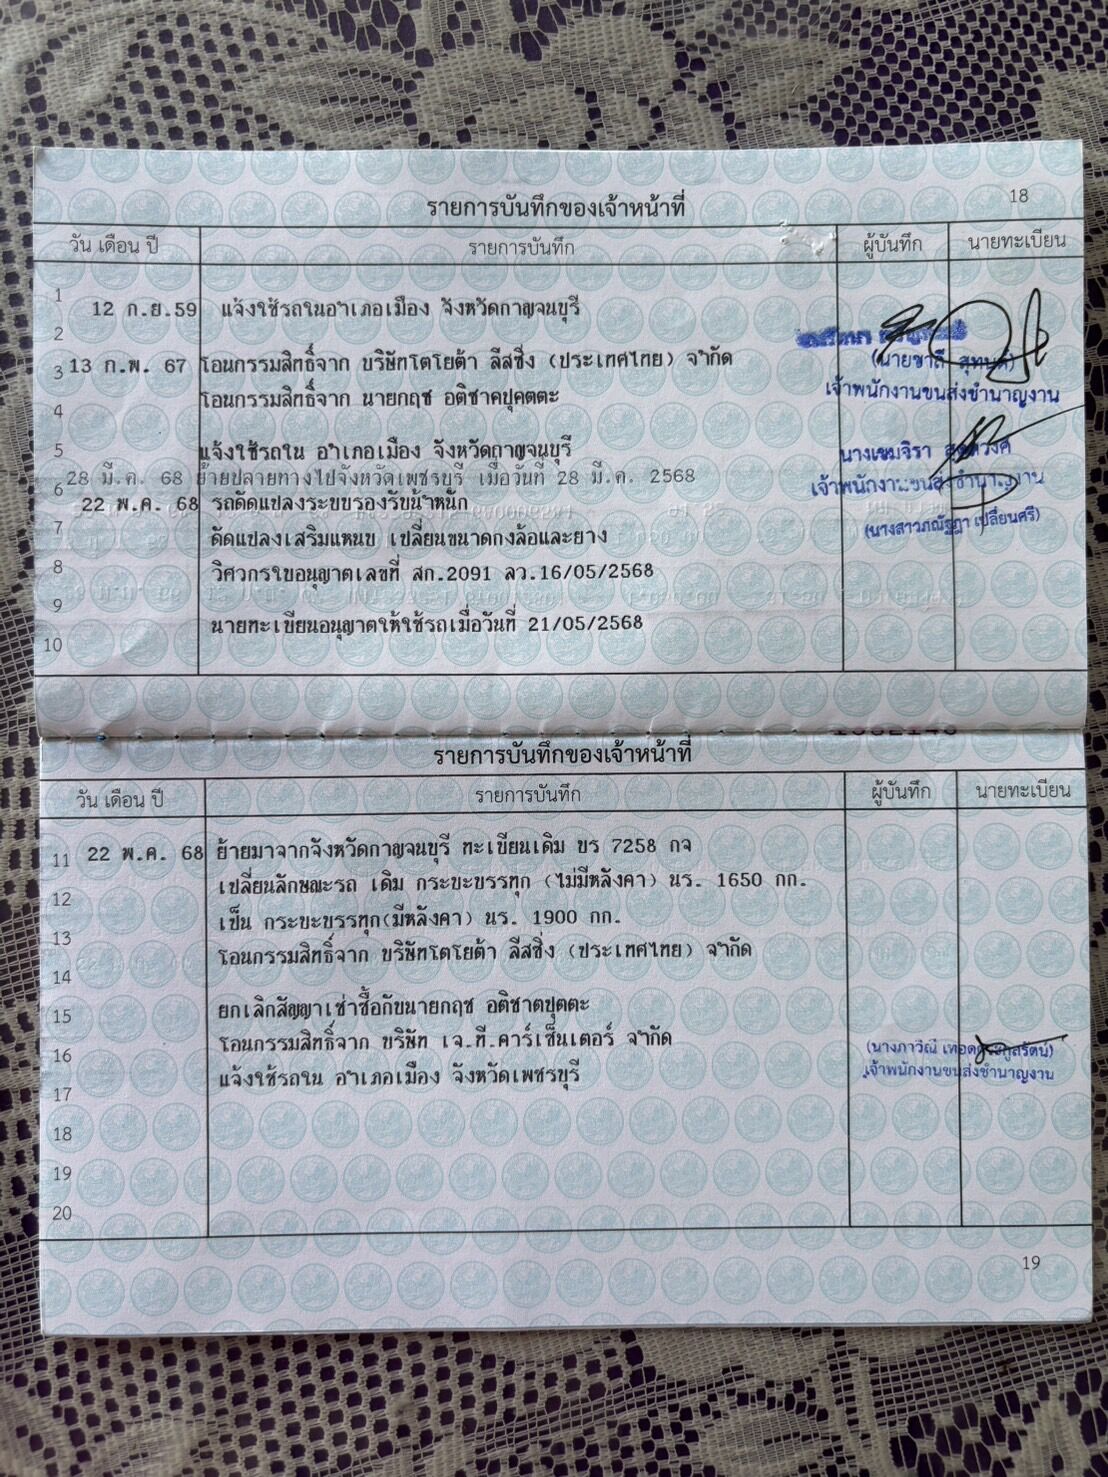 18
รายการบันทึกของเจ้าหน้าที่
วัน เดือน ปี รายการบันทึก ผู้บันทึก นายทะเบียน
1
12 ก.ย.59 แจ้งใช้รถในอำเภอเมือง จังหวัดกาญจนบุรี
2
3 13 ก.พ. 67 โอนกรรมสิทธิ์จาก บริษัทโตโยต้า ลีสซิ่ง (ประเทศไทย) จำกัด
(นายชาลี
โอนกรรมสิทธิ์จาก นายกฤช อติชาตปุคตตะ
เจ้าพนักงานขนส่งชำนาญงาน
4
5 แจ้งใช้รถใน อำเภอเมือง จังหวัดกาญจนบุรี
นางเขมจิรา
28 มี.ค. 68 ย้ายปลายทางไปจังหวัดเพชรบุรี เมื่อวันที่ 28 มี.ค. 2568
เจ้าพนักงานขนส่งชำนาญงาน
6 22 พ.ค. 68 รถดัดแปลงระบบรองรับน้ำหนัก
(นางสาวภณัฐฎา เปลี่ยนศรี)
7 ดัดแปลงเสริมแหนบ เปลี่ยนขนาดกงล้อและยาง
8 วิศวกรใบอนุญาตเลขที่ สก.2091 ลว.16/05/2568
9
10 นายทะเบียนอนุญาตให้ใช้รถเมื่อวันที่ 21/05/2568
รายการบันทึกของเจ้าหน้าที่
วัน เดือน ปี รายการบันทึก ผู้บันทึก นายทะเบียน
11 22 พ.ค. 68 ย้ายมาจากจังหวัดกาญจนบุรี ทะเบียนเดิม บร 7258 กจ
เปลี่ยนลักษณะรถ เดิม กระบะบรรทุก (ไม่มีหลังคา) นร. 1650 กก.
12
เป็น กระบะบรรทุก(มีหลังคา) นร. 1900 กก.
13
โอนกรรมสิทธิ์จาก บริษัทโตโยต้า ลีสซิ่ง (ประเทศไทย) จำกัด
14
15 ยกเลิกสัญญาเช่าซื้อกับนายกฤช อติชาตปุตตะ
โอนกรรมสิทธิ์จาก บริษัท เจ.ที.คาร์เซ็นเตอร์ จำกัด
16 (นางภาวิณี
แจ้งใช้รถใน อำเภอเมือง จังหวัดเพชรบุรี
เจ้าพนักงานขนส่งชำนาญงาน
17
18
19
20
19